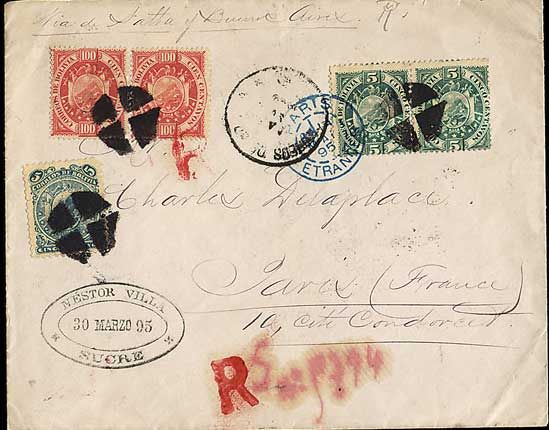 Via de Salta y Buenos Aires. R.
CORREOS DE BOLIVIA
100 100
CIEN CENTAVOS
CORREOS DE BOLIVIA
100 100
CIEN CENTAVOS
5 5
CINCO CENTAVOS
5 5
CINCO CENTAVOS
CORREOS
PARIS
95
ETRANGER
CORREOS DE BOLIVIA
5
Charles Delaplace
Paris (France)
10, cité Condorcet
NESTOR VILLA
30 MARZO 95
SUCRE
R